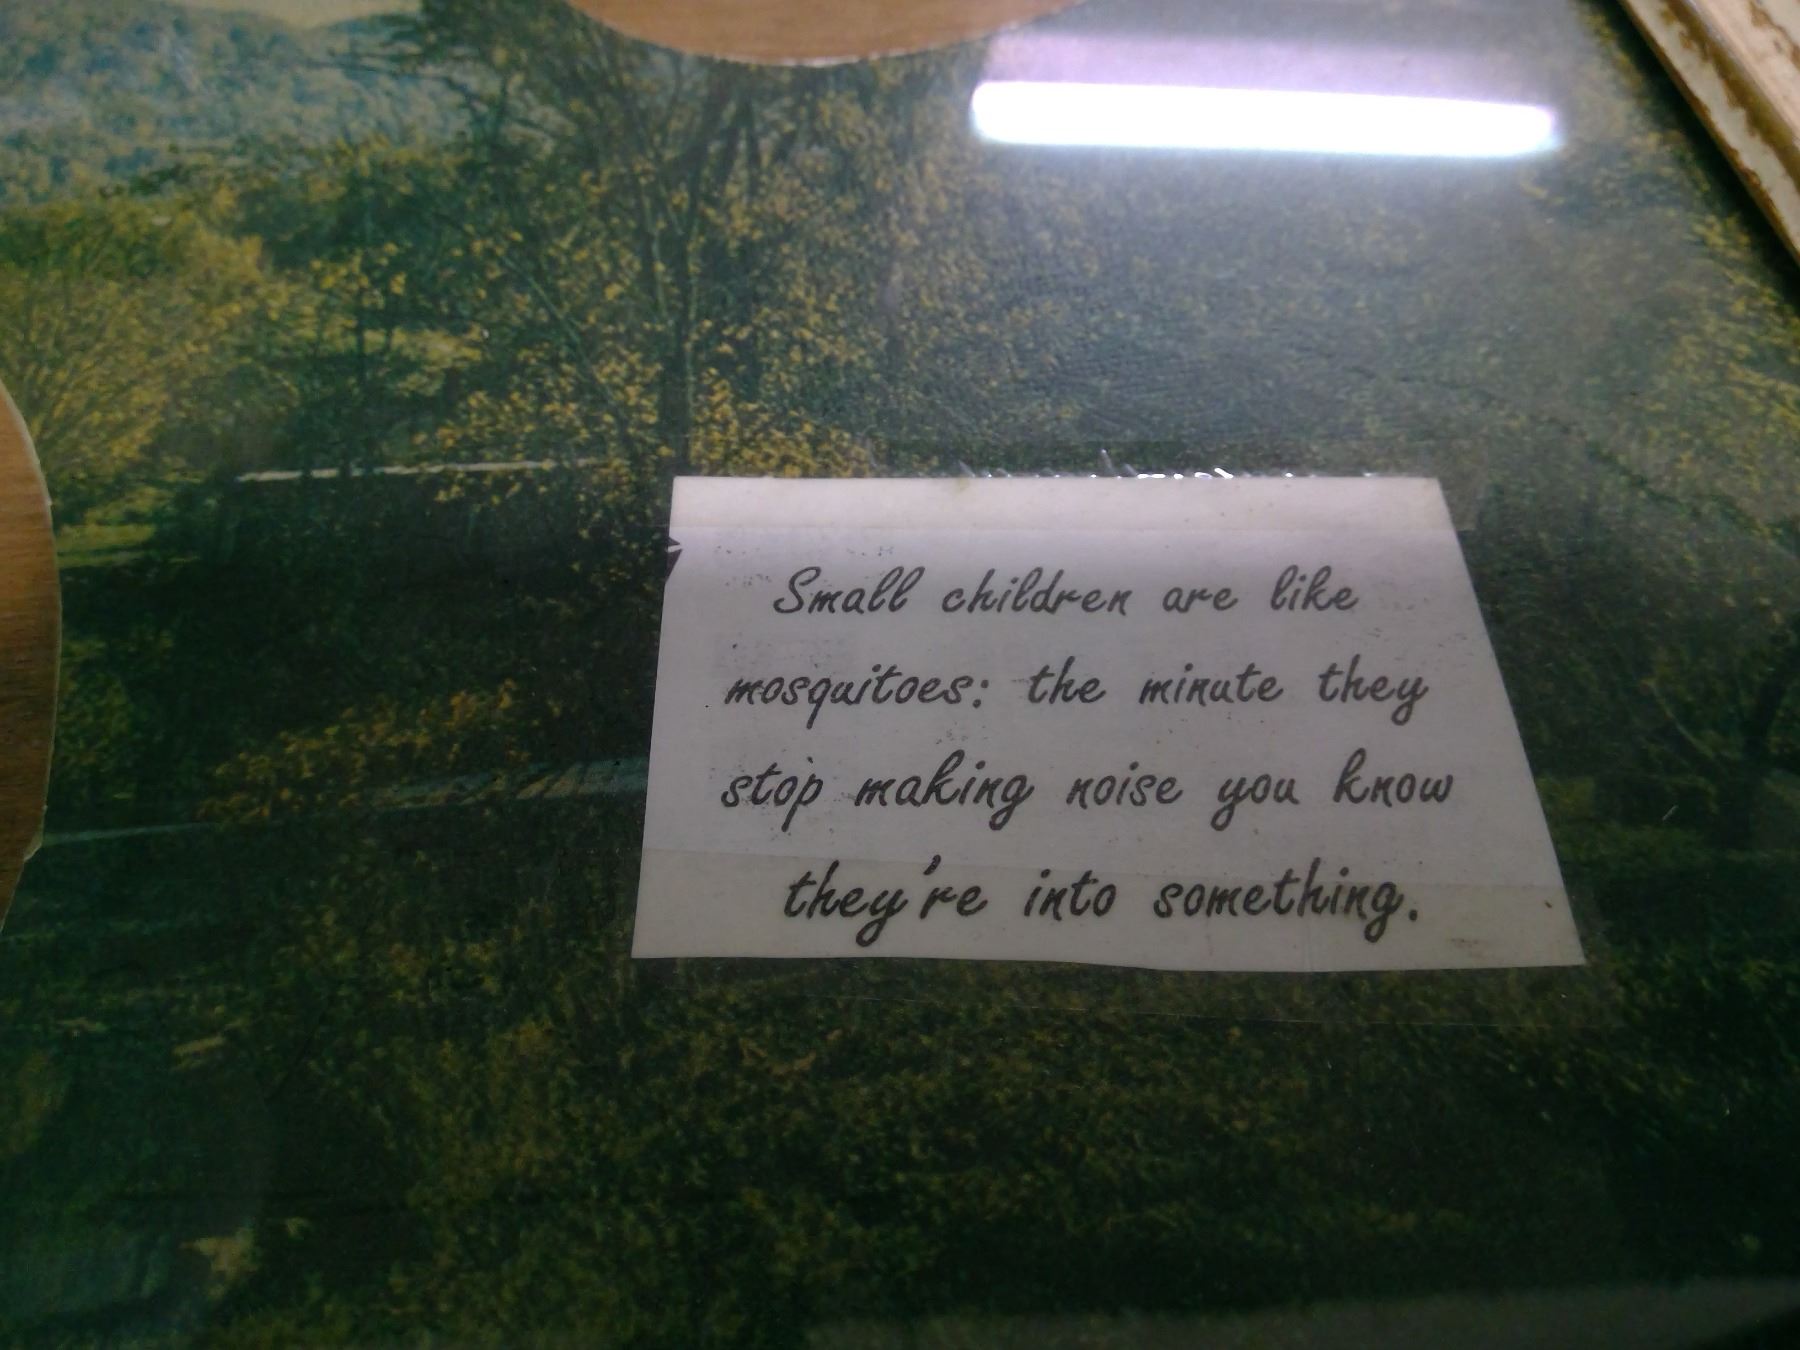 Small children are like
mosquitoes: the minute they
stop making noise you know
they're into something.